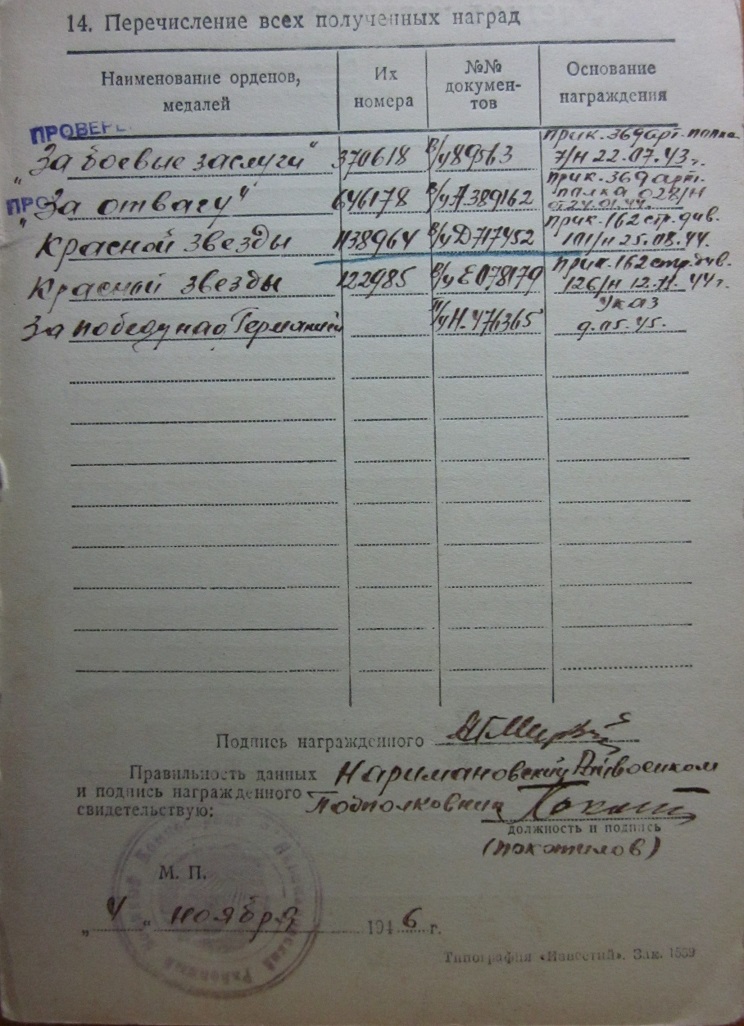 14. Перечисление всех полученных наград
Наименование орденов, медалей
Их номера
№№ документов
Основание награждения
ПРОВЕРЕ
„За боевые заслуги" 370618 в/у 89563 Прик. 369 арт. полка
7/н 22.07.43г.
ПРО
„За отвагу" 646178 в/у А 389162 Прик. 369 арт.
полка 028/н
Красной звезды 1138964 в/у Д717452 Прик. 162 стр. див.
101/н 25.08.44.
Красной звезды 122985 в/у Е078179 Прик. 162 стр. див.
126/н 12.11.44г.
За победу над Германией у Н. 476365 Указ
9.05.45.
Подпись награжденного
Правильность данных Наримановский Райвоенком
и подпись награжденного
свидетельствую: Подполковник
должность и подпись
(Покатилов)
М. П.
„4" ноября 1946 г.
Типография «Известий». Зак. 1559